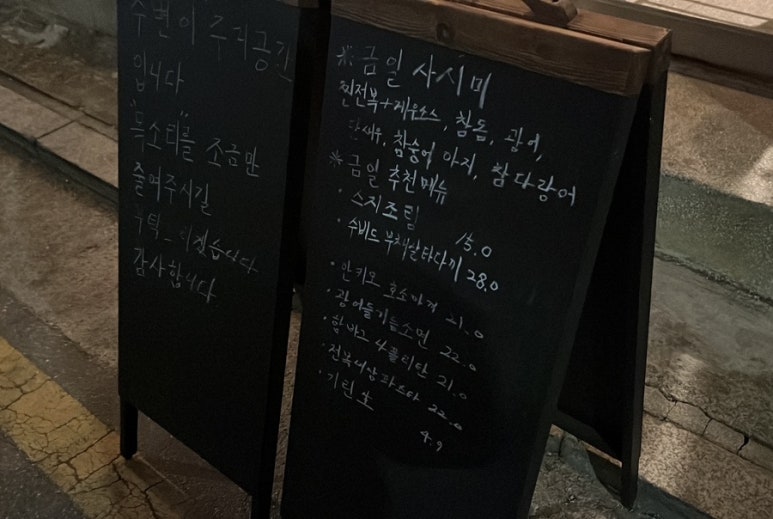 주변이 주거공간
입니다
"목소리"를 조금만
줄여주시길
부탁드리겠습니다
감사합니다
※ 금일 사시미
찐전복+게우소스, 참돔, 광어,
단새우, 참숭어, 아지, 참다랑어
※ 금일 추천메뉴
· 스지조림 15.0
· 수비드 부채살타다끼 28.0
· 안키모 호소마끼 21.0
· 광어들기름소면 22.0
· 함바그 4플리탄 21.0
· 전복내장파스타 22.0
· 기린生 4.9